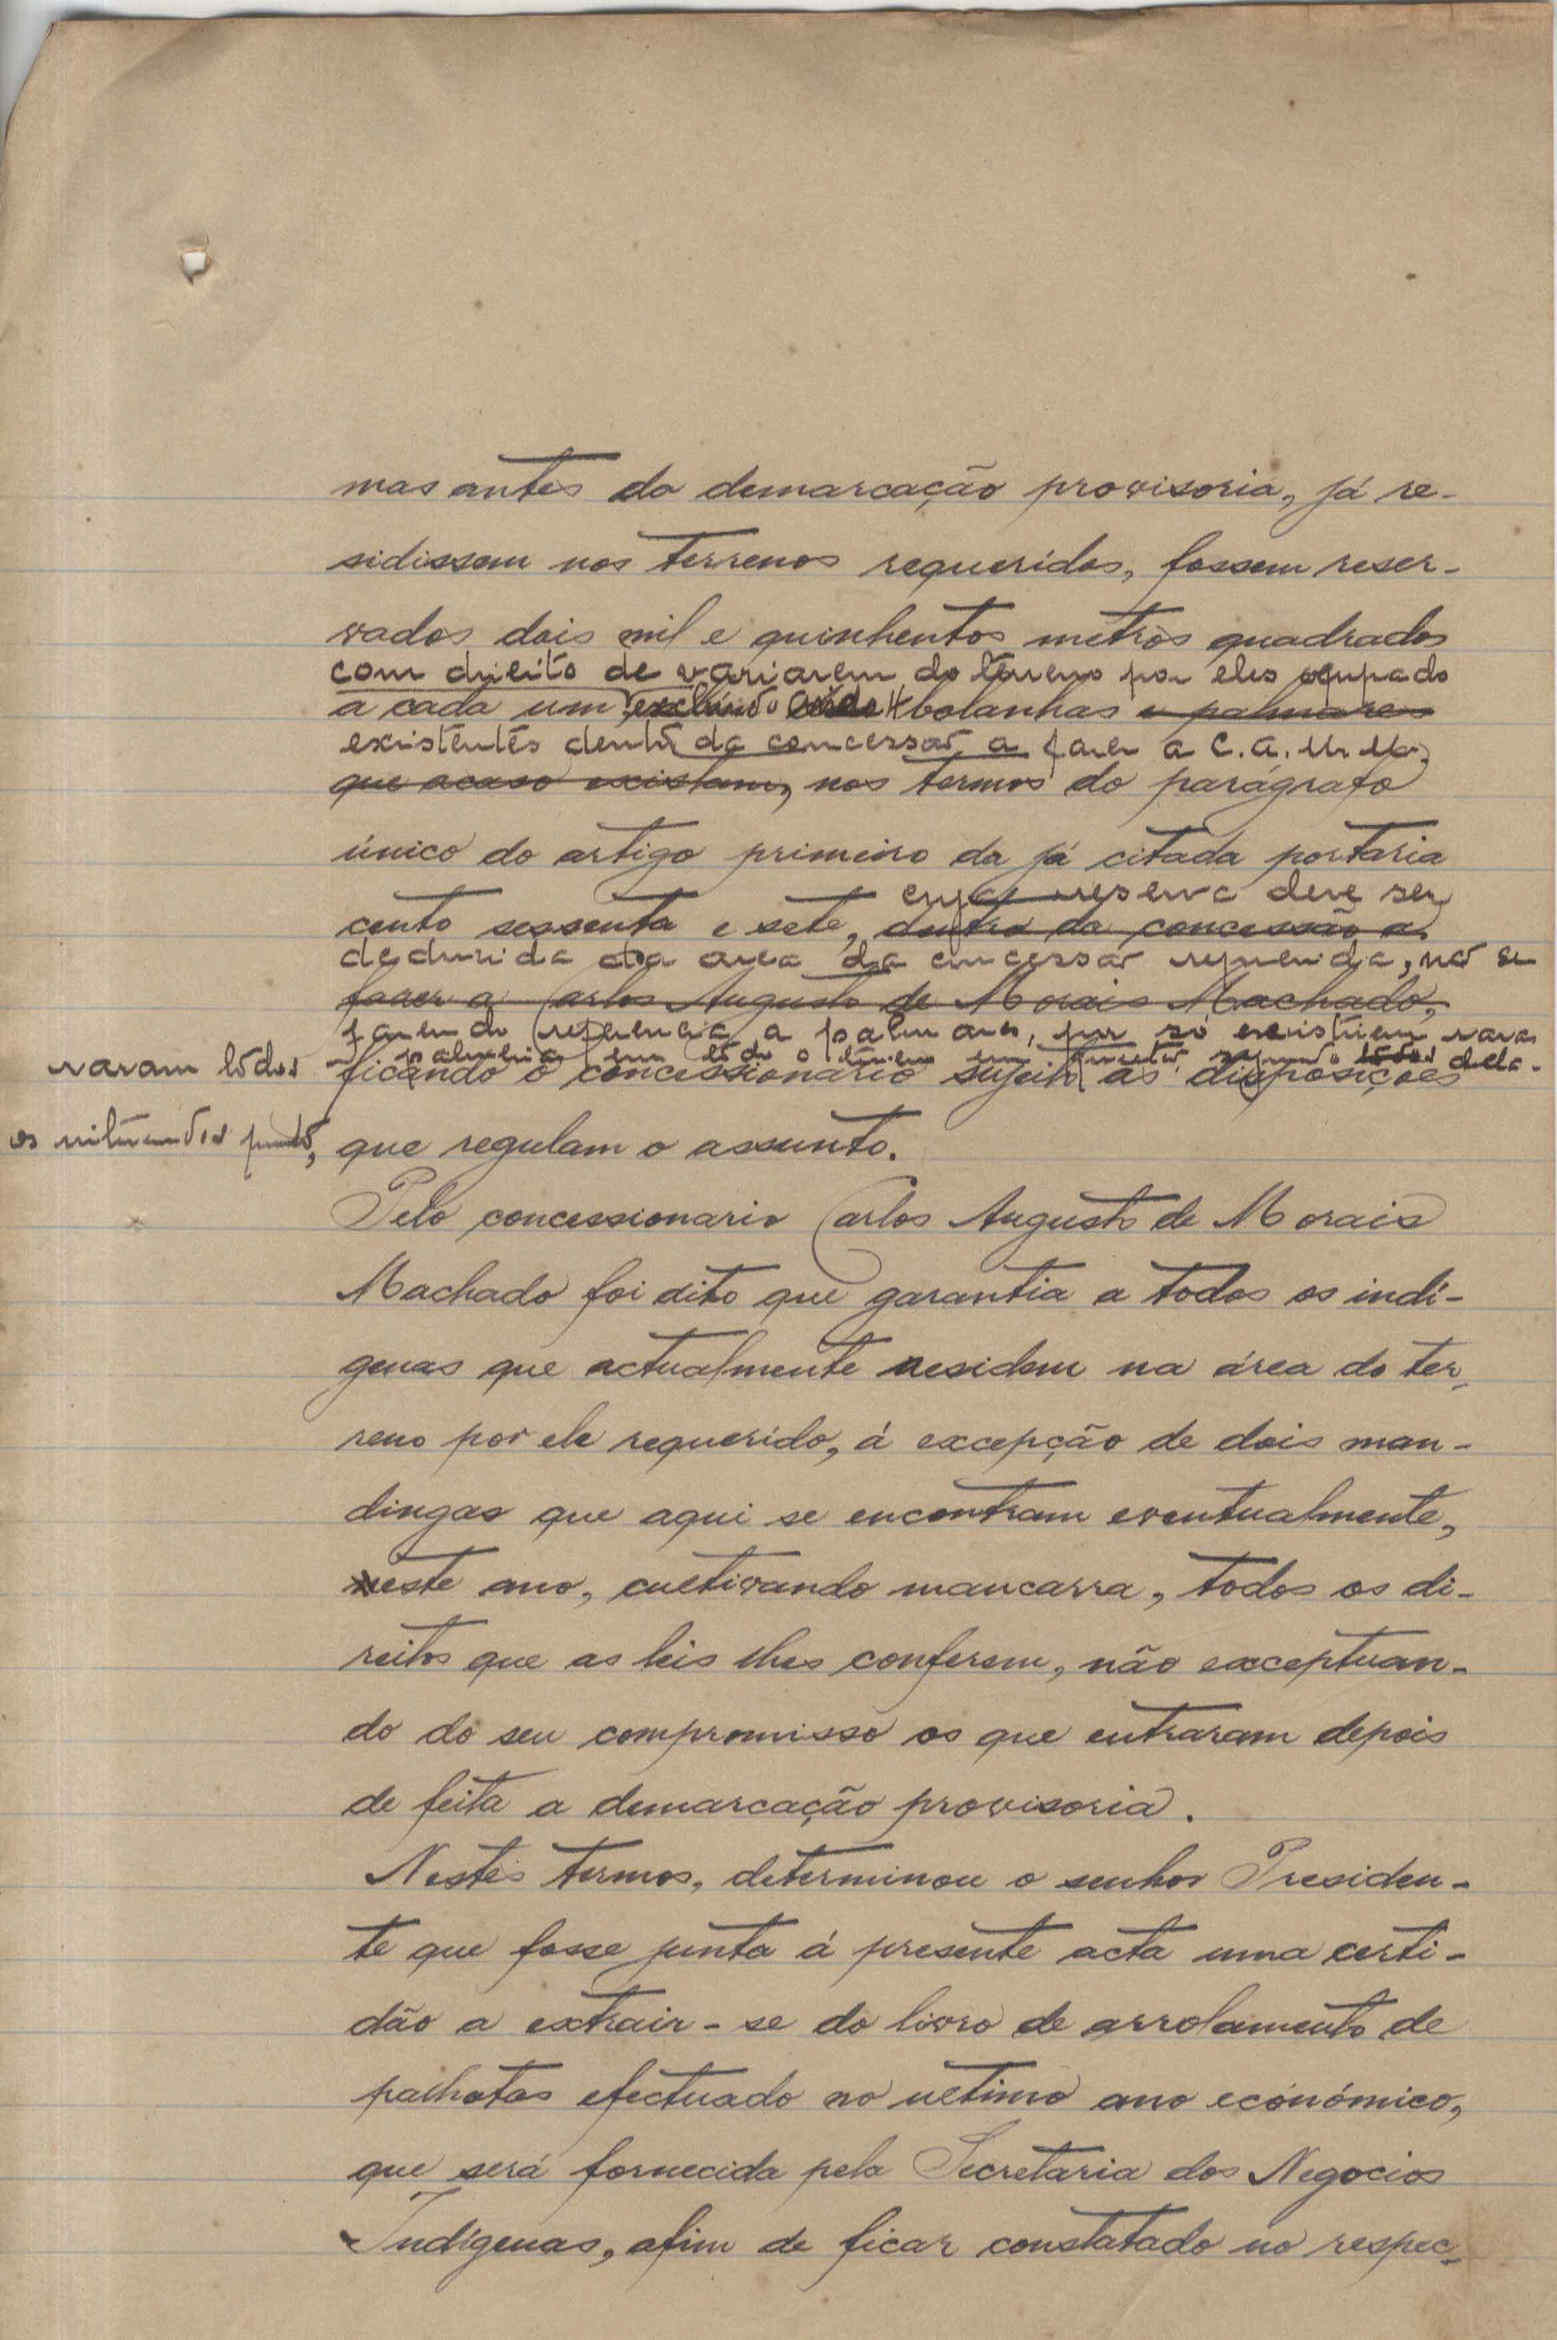 mas antes da demarcação provisoria, já re-
sidissem nos terrenos requeridos, fossem reser-
vados dois mil e quinhentos metros quadrados
com direito de variarem do terreno por eles ocupado
a cada um excluindo bolanhas e palmares
existentes dentro da concessão a fazer a C. A. M. M.
que acaso existam, nos termos do parágrafo
único do artigo primeiro da já citada portaria
cuja reserva deve ser
cento sessenta e sete, dentro da concessão a
deduzida da area da concessão requerida, não se
fazer a Carlos Augusto de Morais Machado,
fazendo referencia a palmares, por só existirem raras
palmeiras em todo o terreno em questão, segundo todos decla-
varam todos
ficando o concessionario sujeito ás disposições
os
que regulam o assunto.
Pelo concessionario Carlos Augusto de Morais
Machado foi dito que garantia a todos os indi-
genas que actualmente residem na área do ter-
reno por ele requerido, á excepção de dois man-
dingas que aqui se encontram eventualmente,
neste ano, cultivando mancarra, todos os di-
reitos que as leis lhes conferem, não exceptuan-
do do seu compromisso os que entraram depois
de feita a demarcação provisoria.
Nestes termos, determinou o senhor Presiden-
te que fosse junta á presente acta uma certi-
dão a extrair-se do livro de arrolamento de
palhotas efectuado no ultimo ano económico,
que será fornecida pela Secretaria dos Negocios
Indígenas, afim de ficar constatado no respec-